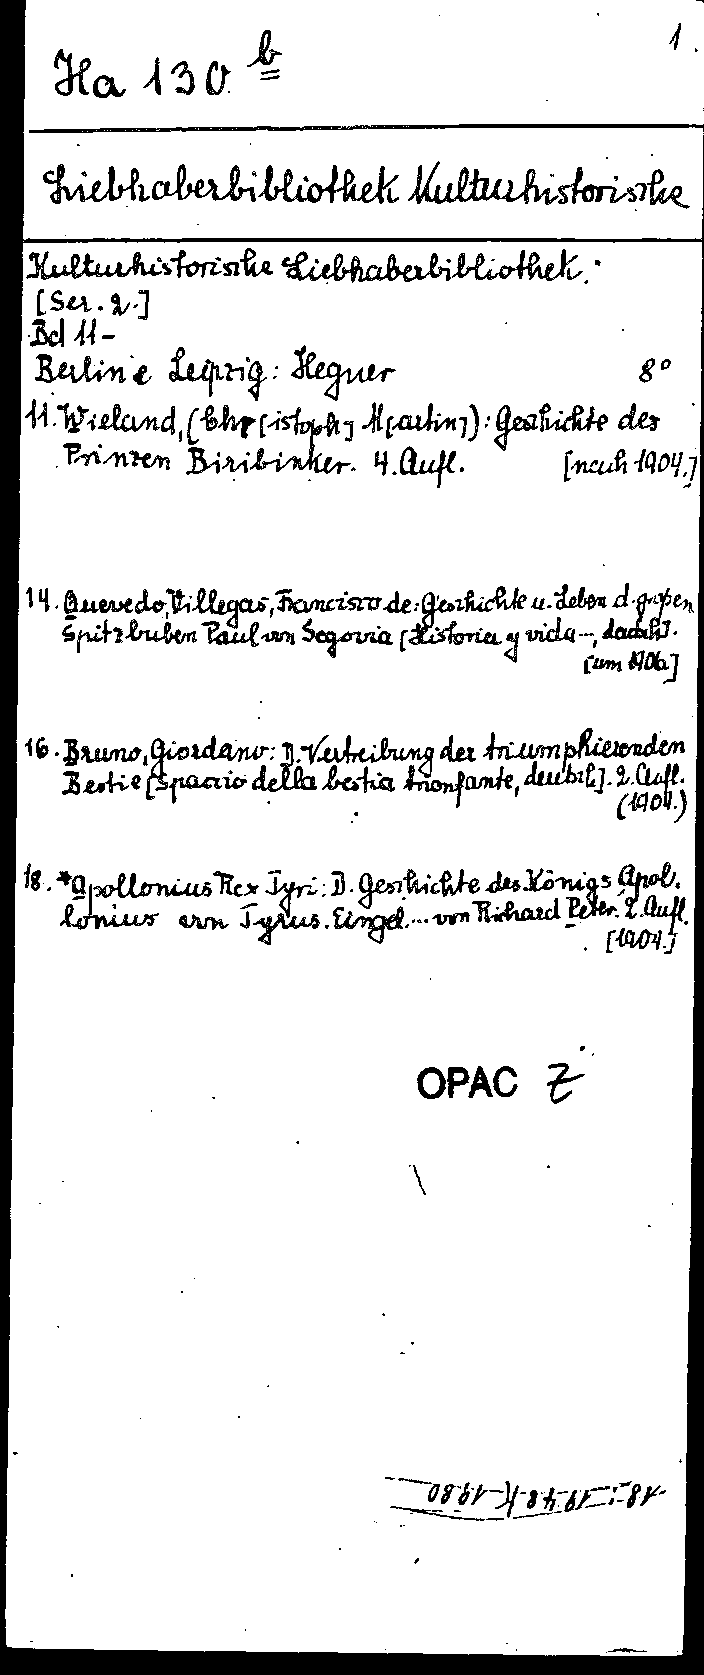 1.
Ha 130 b
Liebhaberbibliothek Kulturhistorische
Kulturhistorische Liebhaberbibliothek.
[Ser. 2.]
Bd 11-
Berlin e Leipzig: Hegner 8°
11. Wieland, (Chr[istoph] M[artin]): Geschichte des
Prinzen Biribinker. 4. Aufl. [nach 1904.]
14. Quevedo Villegas, Francisco de: Geschichte u. Leben d. großen
Spitzbuben Paul von Segovia [Historia y vida ..., deutsch].
[um 1906]
16. Bruno, Giordano: D. Vertreibung der triumphierenden
Bestie [Spaccio della bestia trionfante, deutsch]. 2. Aufl.
(1904.)
18. *Apollonius Rex Tyri: D. Geschichte des Königs Apol-
lonius von Tyrus. Eingel. ... von Richard Peter. 2. Aufl.
[1904.]
OPAC Z
18 : 1948 K 1980